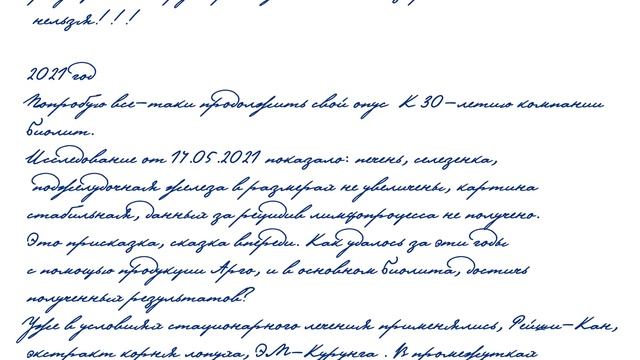 нельзя!!!
2021 год
Попробую все-таки продолжить свой опус К 30-летию компании
Биолит.
Исследование от 17.05.2021 показало: печень, селезенка,
поджелудочная железа в размерах не увеличены, картина
стабильная, данных за рецидив лимфопроцесса не получено.
Это присказка, сказка впереди. Как удалось за эти годы
с помощью продукции Арго, и в основном Биолита, достичь
полученных результатов?
Уже в условиях стационарного лечения применялись, Рейши-Кан,
экстракт корня лопуха, ЭМ-Курунга. В промежутках